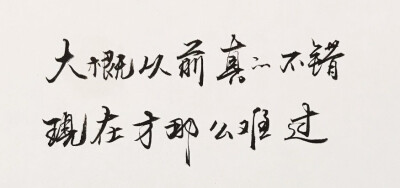 大概以前真心不錯
現在才那么难过